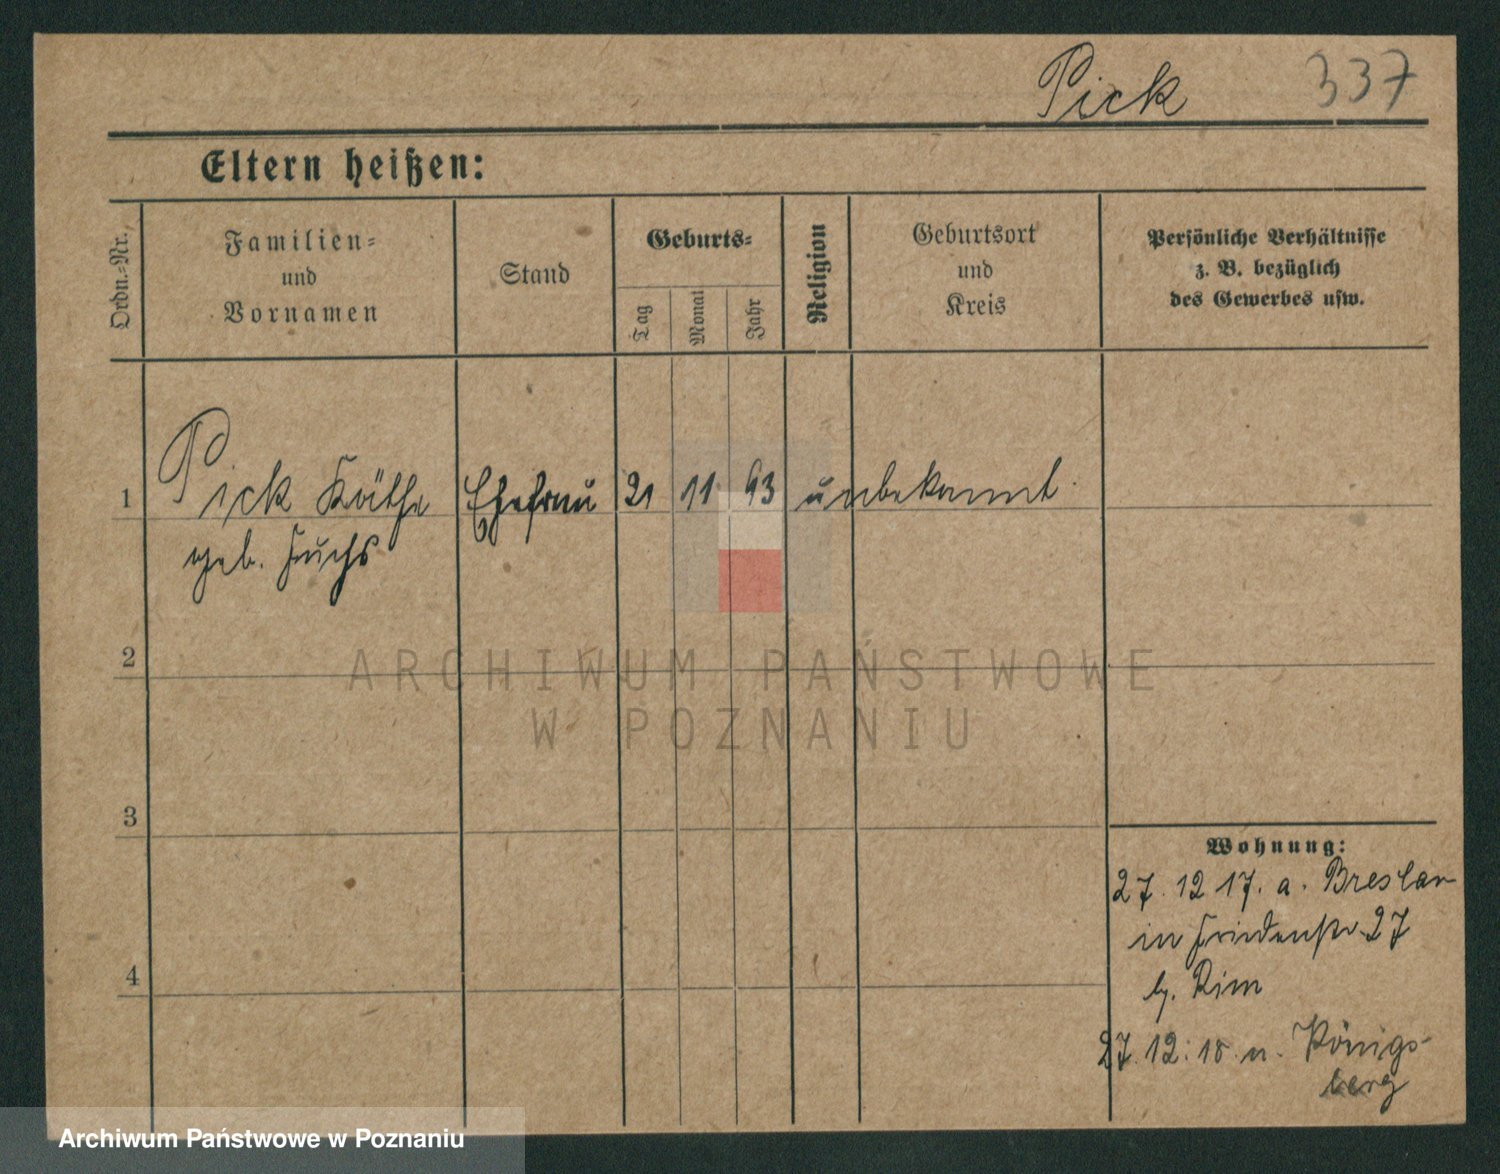 Pick 337
Eltern heißen:
Ordn.-Nr.
Familien-
und
Vornamen
Stand
Geburts-
Tag
Monat
Jahr
Religion
Geburtsort
und
Kreis
Persönliche Verhältnisse
z. B. bezüglich
des Gewerbes usw.
1 Pick Käthe Ehefrau 21 11 93 unbekannt
geb. Fuchs
2
3
4
Wohnung:
27. 12 17. a. Breslau
in Friedenstr. 27
b. Rim
27. 12. 18 n. Königs-
berg
ARCHIWUM PAŃSTWOWE
W POZNANIU
Archiwum Państwowe w Poznaniu